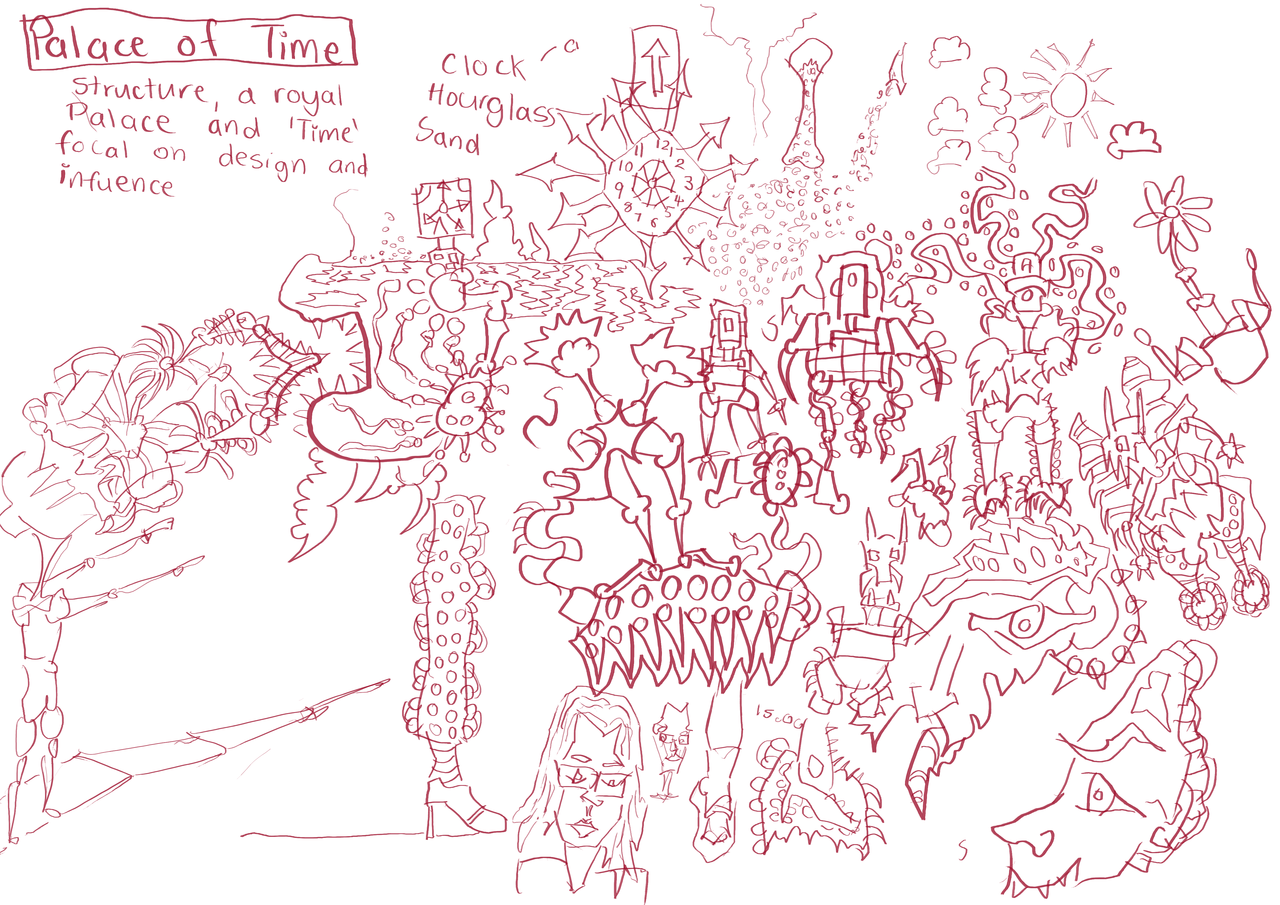 Palace of Time
Structure, a royal
Palace and 'Time'
focal on design and
infuence
Clock
Hourglass
Sand
a
12
11
12
10
2
9
3
8
4
7
6
5
A
15.00
S